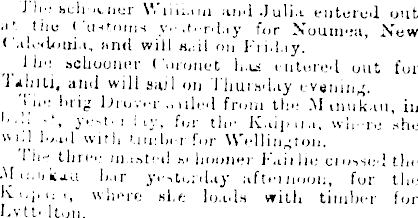 The schooner William and Julia entered out
at the Customs yesterday for Noumea, New
Caledonia, and will sail on Friday.
The schooner Coronet has entered out for
Tahiti, and will sail on Thursday evening.
The brig Drover sailed from the Manukau, in
ballast, yesterday, for the Kaipara, where she
will load with timber for Wellington.
The three masted schooner Fairlie crossed the
Manukau bar yesterday afternoon, for the
Kaipara, where she loads with timber for
Lyttelton.